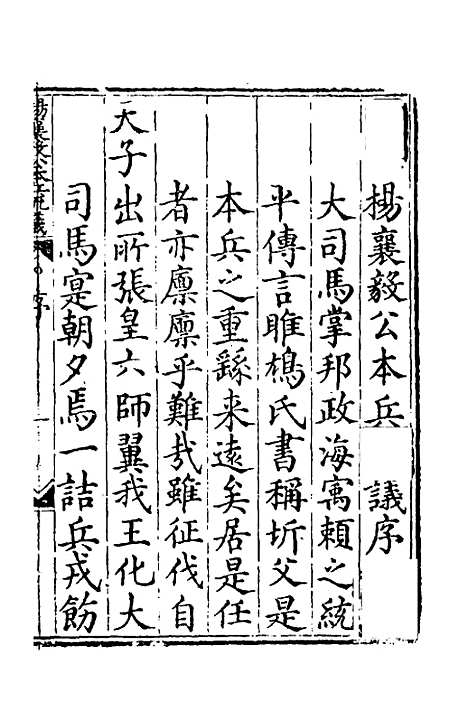 楊襄毅公本兵 議序
大司馬掌邦政海寓賴之統
平傳言雎鳩氏書稱圻父是
本兵之重繇來遠矣居是任
者亦廩廩乎難哉雖征伐自
天子出所張皇六師翼我王化大
司馬寔朝夕焉一詰兵戎飭